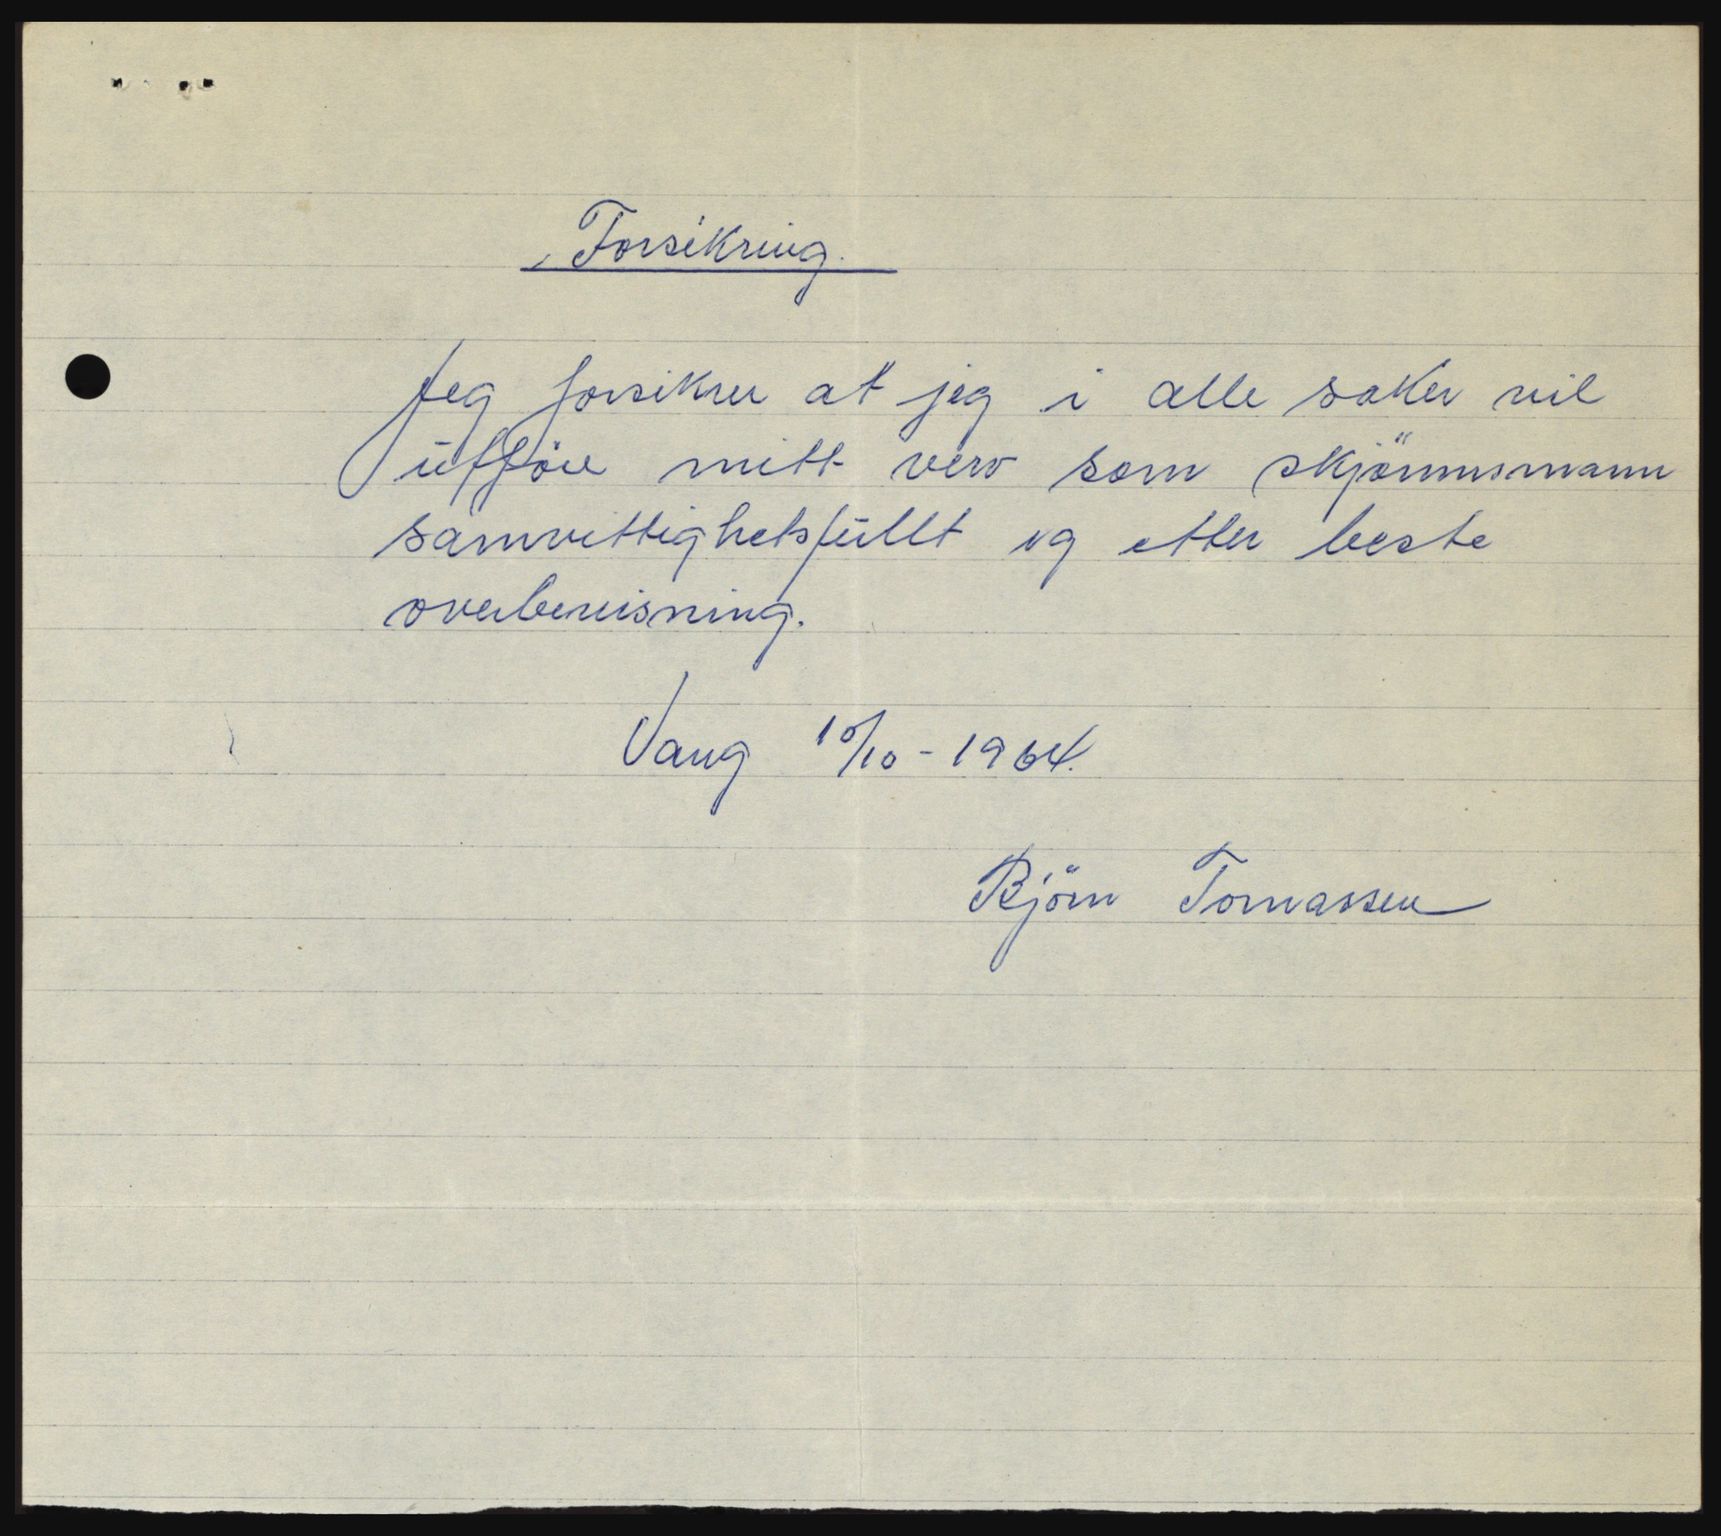 Forsikring.
Jeg forsikrer at jeg i alle saker vil
utföre mitt verv som skjönnsmann
samvittighetsfullt og etter beste
overbevisning.
Vang 10/10 - 1964.
Björn Tomassen